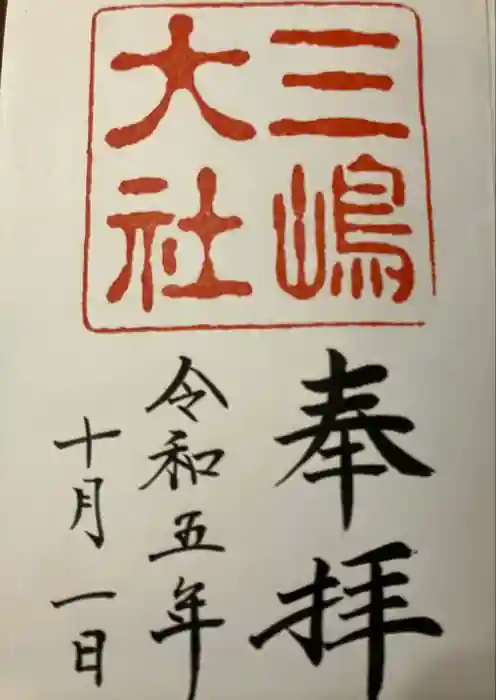 三嶋
大社
奉拝
令和五年
十月一日